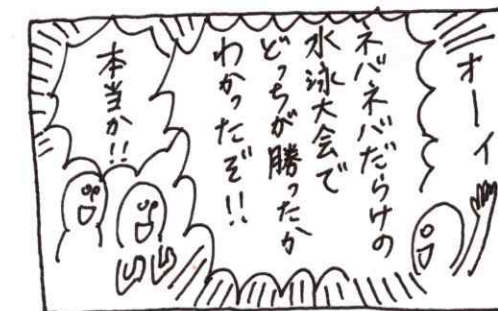 オーイ
ネバネバだらけの
水泳大会で
どっちが勝ったか
わかったぞ!!
本当か!!